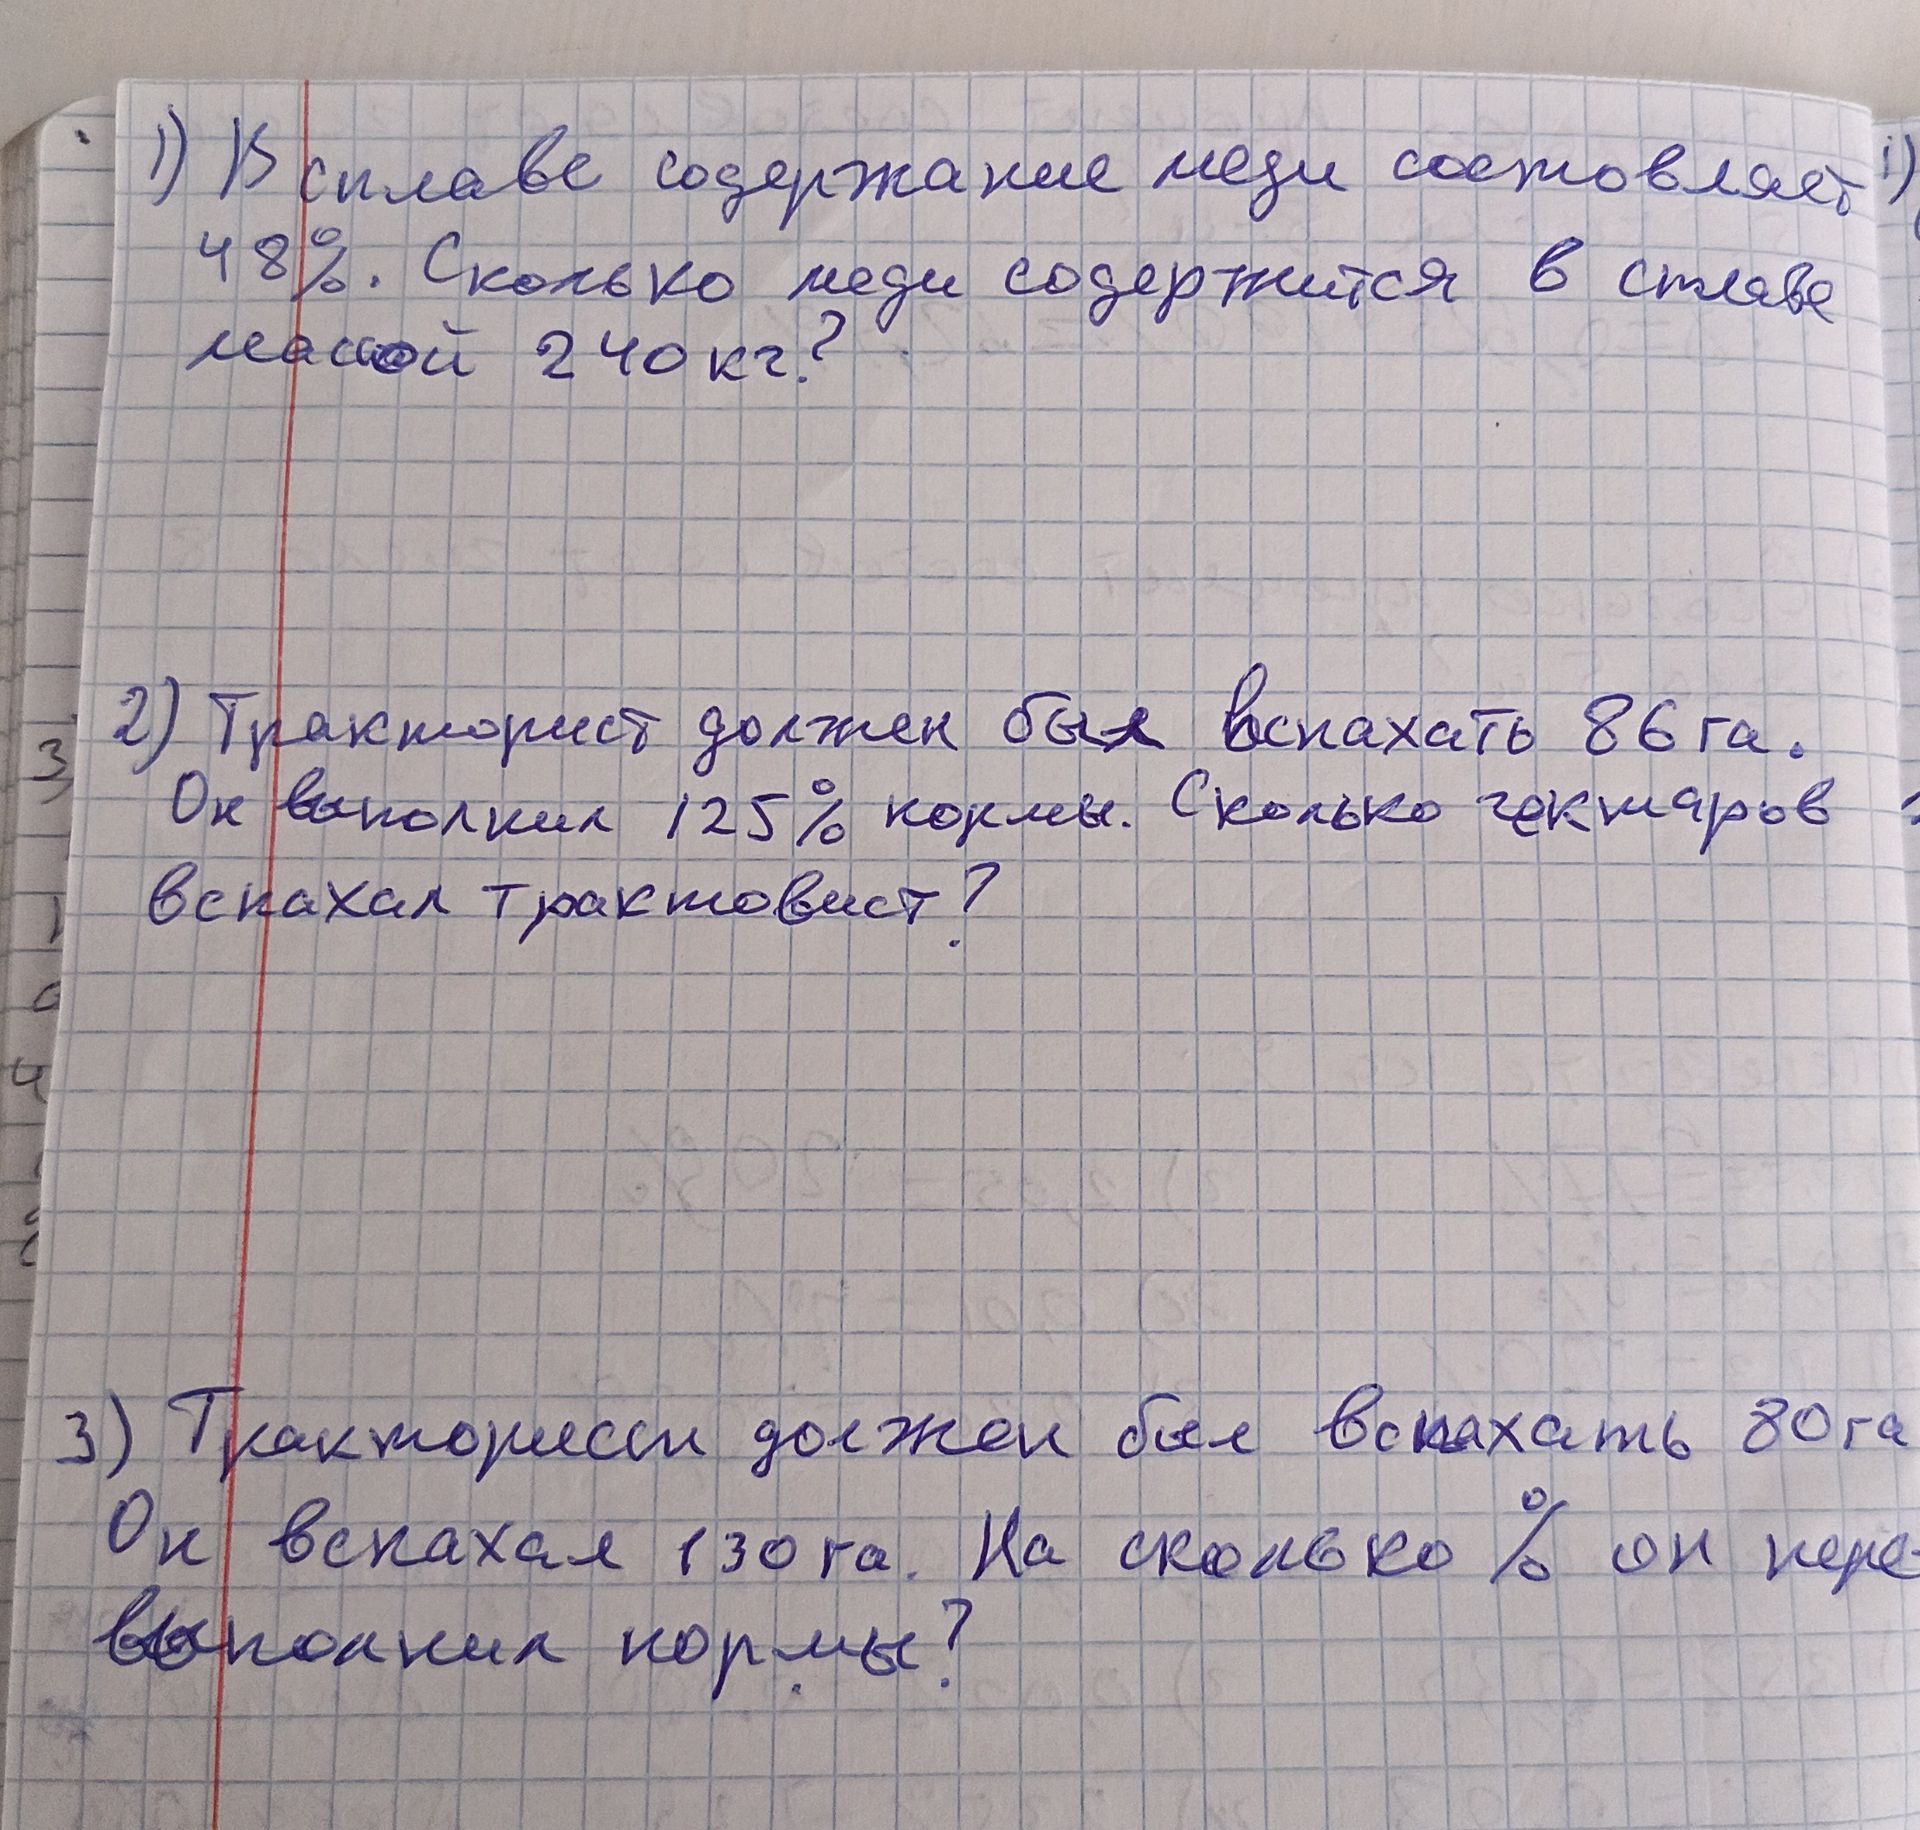 1) В сплаве содержание меди состовляет
48%. Сколько меди содержится в сплаве
массой 240 кг?
2) Тракторист должен был вспахать 86 га.
Он выполнил 125% нормы. Сколько гектаров
вспахал трактовист?
3) Тракторист должен был вспахать 80 га
Он вспахал 130 га. На сколько % он пере-
выполнил нормы?